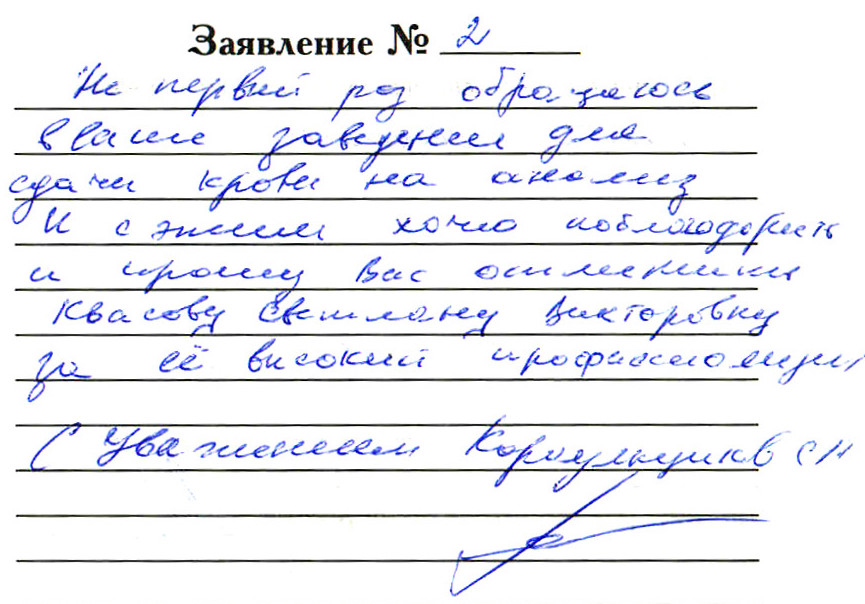 Заявление № 2
Не первый раз обращаюсь
в Ваше заведении для
сдачи крови на анализ
И с этим хочю поблагодарить
и прошу Вас
Квасову Светлану Викторовну
за её високий профассионализм
С Уваженнием Караульщиков СН